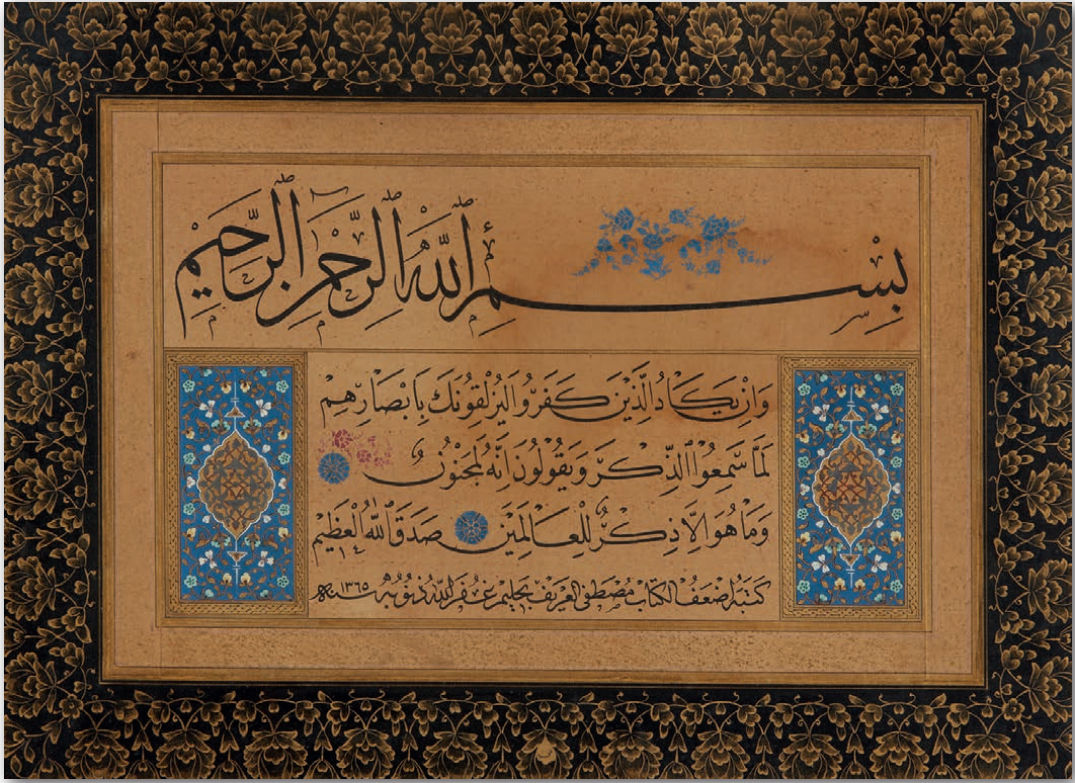 بِسْمِ اللّٰهِ الرَّحْمٰنِ الرَّحِيْمِ
وَاِنْ يَكَادُ الَّذِيْنَ كَفَرُوا لَيُزْلِقُونَكَ بِاَبْصَارِهِمْ
لَمَّا سَمِعُوْا الذِّكْرَ وَيَقُوْلُوْنَ اِنَّهُ لَمَجْنُوْنٌ
وَمَا هُوَ اِلَّا ذِكْرٌ لِلْعَالَمِيْنَ صَدَقَ اللّٰهُ الْعَظِيْمُ
كَتَبَهُ اَضْعَفُ الْكُتَّابِ مُصْطَفَى الْعَرِيْف بِحَلِيْم غَفَرَ اللّٰهُ ذُنُوْبَهُ سنه ١٣٦٥